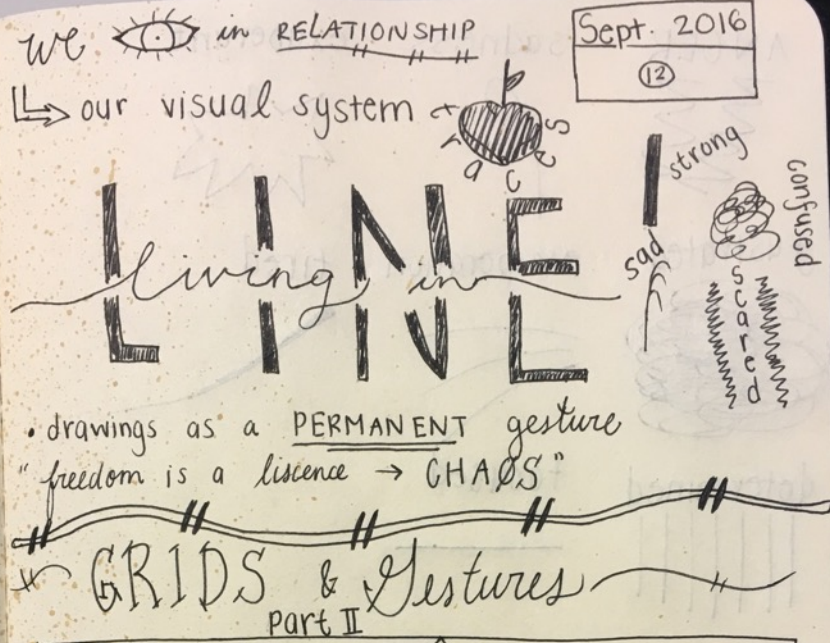 we in RELATIONSHIP
Sept. 2016
12
our visual system traces
strong
confused
sad
scared
LINE
living in
• drawings as a PERMANENT gesture
"freedom is a liscence → CHAOS"
GRIDS & Gestures
Part II